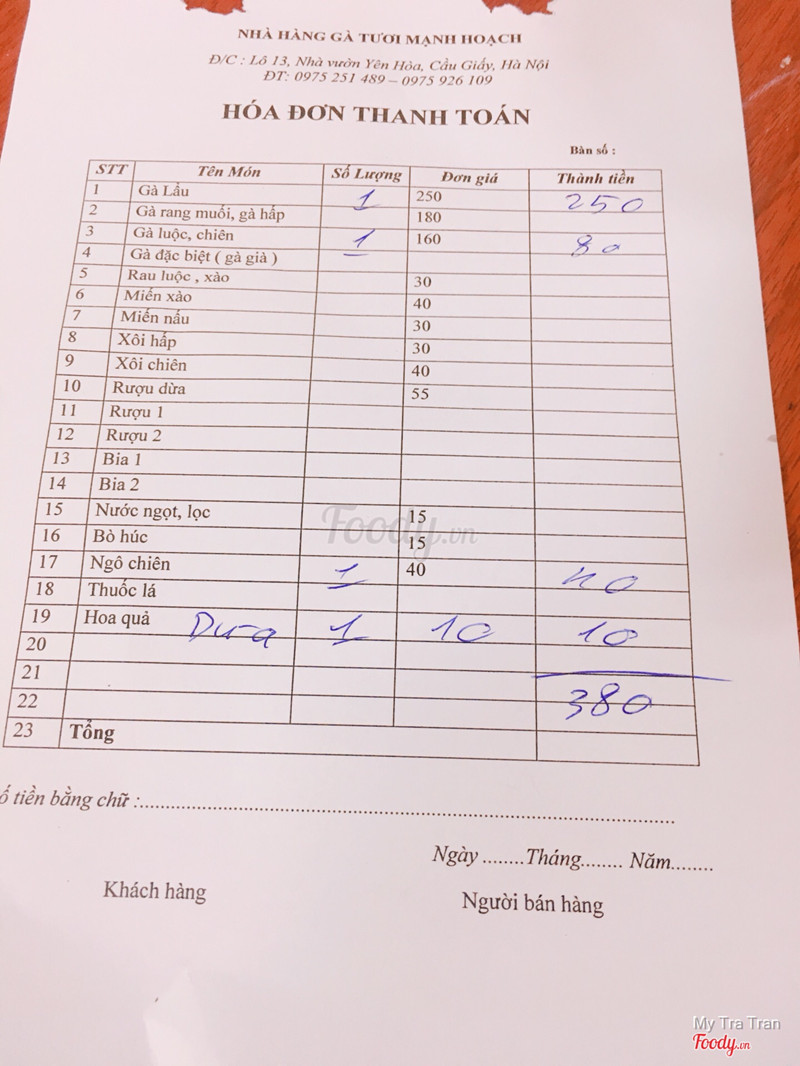 NHÀ HÀNG GÀ TƯƠI MẠNH HOẠCH
Đ/C : Lô 13, Nhà vườn Yên Hòa, Cầu Giấy, Hà Nội
ĐT: 0975 251 489 – 0975 926 109
HÓA ĐƠN THANH TOÁN
Bàn số :
STT Tên Món Số Lượng Đơn giá Thành tiền
1 Gà Lẩu 1 250 250
2 Gà rang muối, gà hấp 180
3 Gà luộc, chiên 1 160 80
4 Gà đặc biệt ( gà già )
5 Rau luộc , xào 30
6 Miến xào 40
7 Miến nấu 30
8 Xôi hấp 30
9 Xôi chiên 40
10 Rượu dừa 55
11 Rượu 1
12 Rượu 2
13 Bia 1
14 Bia 2
15 Nước ngọt, lọc 15
16 Bò húc 15
17 Ngô chiên 1 40 40
18 Thuốc lá
19 Hoa quả Dưa 1 10 10
20
21
22 380
23 Tổng
ố tiền bằng chữ :
Ngày ........Tháng........ Năm........
Khách hàng Người bán hàng
Foody.vn
My Tra Tran
Foody.vn